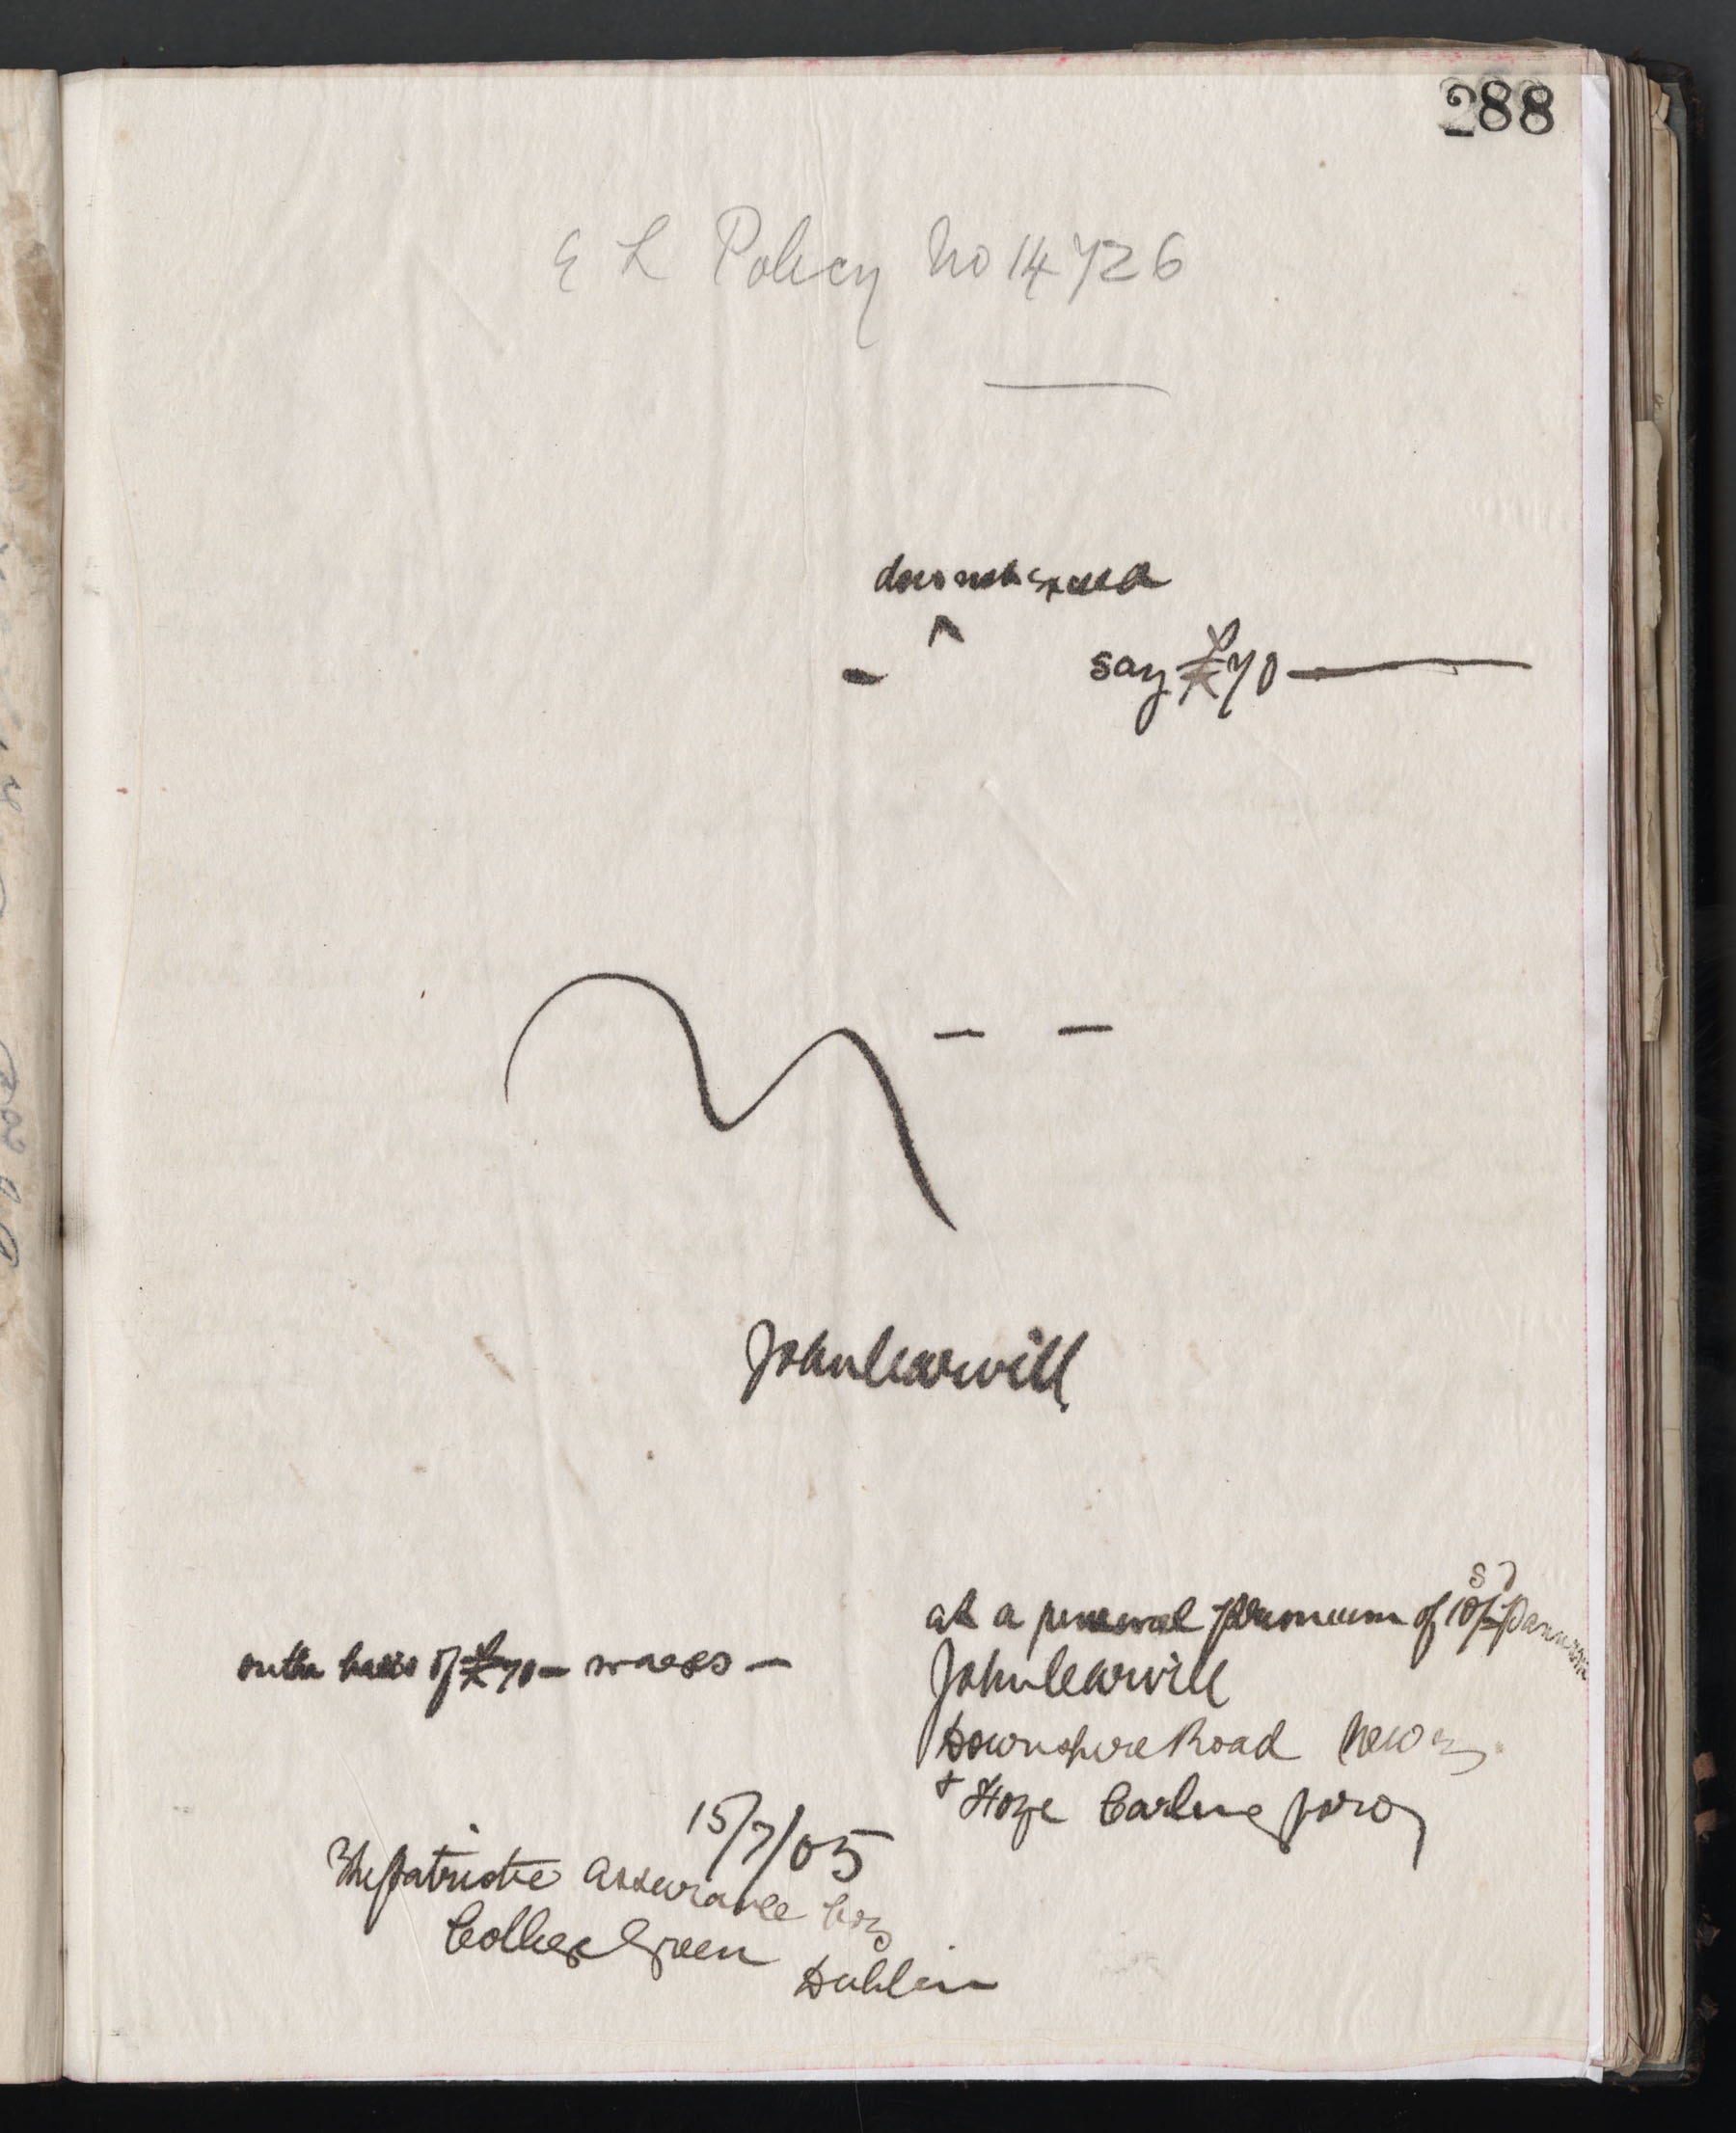 288
E L Policy No 14726
does not exceed
^
- say £70 —
— —
John Carvill
at a renewal premium of 10/- p annum
on the basis of £70 - wages -
John Carvill
Downshire Road Newry
+ Hoze Carlingford
15/7/05
The Patriotic Assurance Coy
College Green
Dublin